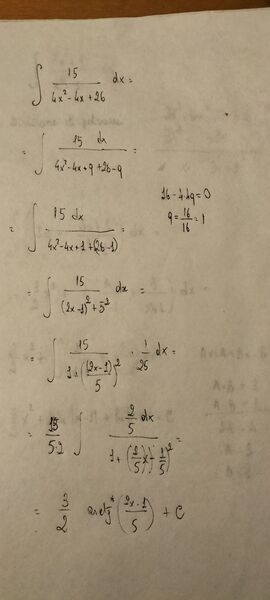 ∫ 15/(4x²-4x+26) dx =
= ∫ 15 dx/(4x²-4x+q+26-q) =
16-4·4q=0
q = 16/16 = 1
= ∫ 15 dx/(4x²-4x+1+(26-1)) =
= ∫ 15/((2x-1)²+5²) dx =
= ∫ 15/(1+((2x-1)/5)²) · 1/25 dx =
= 15/(5·2) ∫ (2/5 dx)/(1+((2/5)x-1/5)²) =
= 3/2 arctg((2x-1)/5) + C